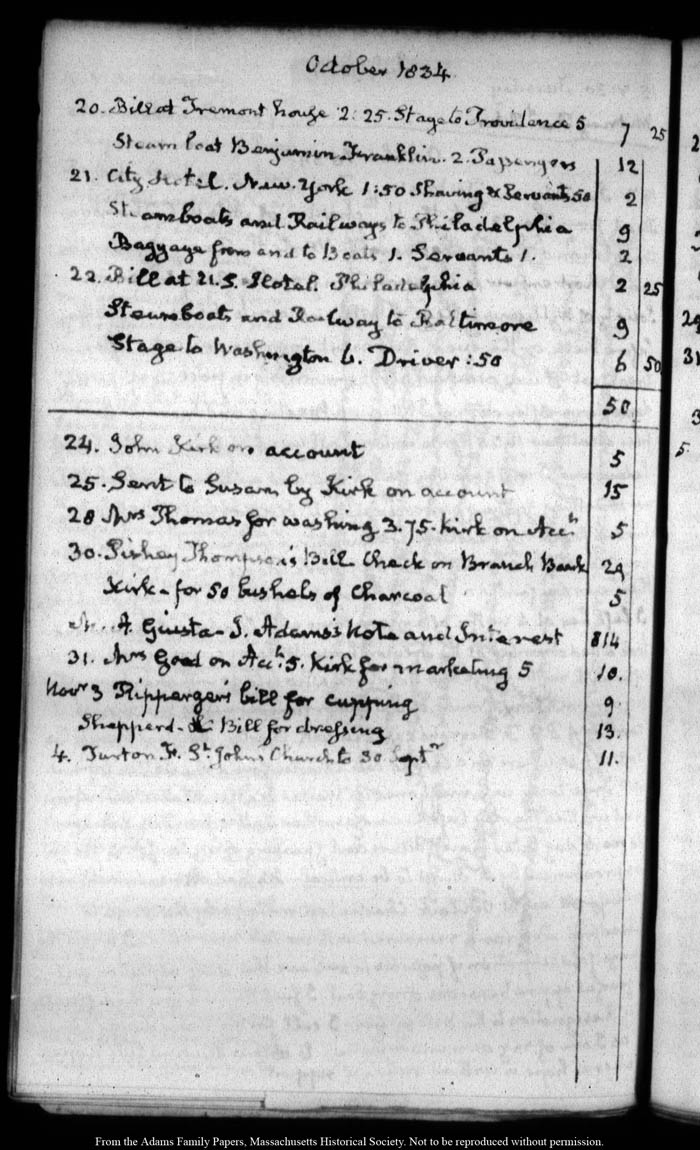 October 1834.
20. Bill at Tremont house 2:25. Stage to Providence 5 7 25
Steam boat Benjamin Franklin. 2. Passengers 12
21. City Hotel. New York 1:50 Shaving & Servants 50 2
Steamboats and Railways to Philadelphia 9
Baggage from and to Boats 1. Servants 1. 2
22. Bill at U.S. Hotel. Philadelphia 2 25
Steamboats and Railway to Baltimore 9
Stage to Washington 6. Driver :50 6 50
50
24. John Kirk on account 5
25. Sent to Susan by Kirk on account 15
28 Mrs Thomas for washing 3.75. Kirk on Acct 5
30. Pishey Thompson's Bill Check on Branch Bank 29
Kirk - for 50 bushels of Charcoal 5
A. Giusta - J. Adams's Note and Interest 814
31. Mrs Good on Acct 5. Kirk for marketing 5 10.
Novr 3 Ripperger's bill for cupping 9
Shepperd - Bill for dressing 13.
4. Turton Fr. St. John's Church to 30 Septr 11.
From the Adams Family Papers, Massachusetts Historical Society. Not to be reproduced without permission.